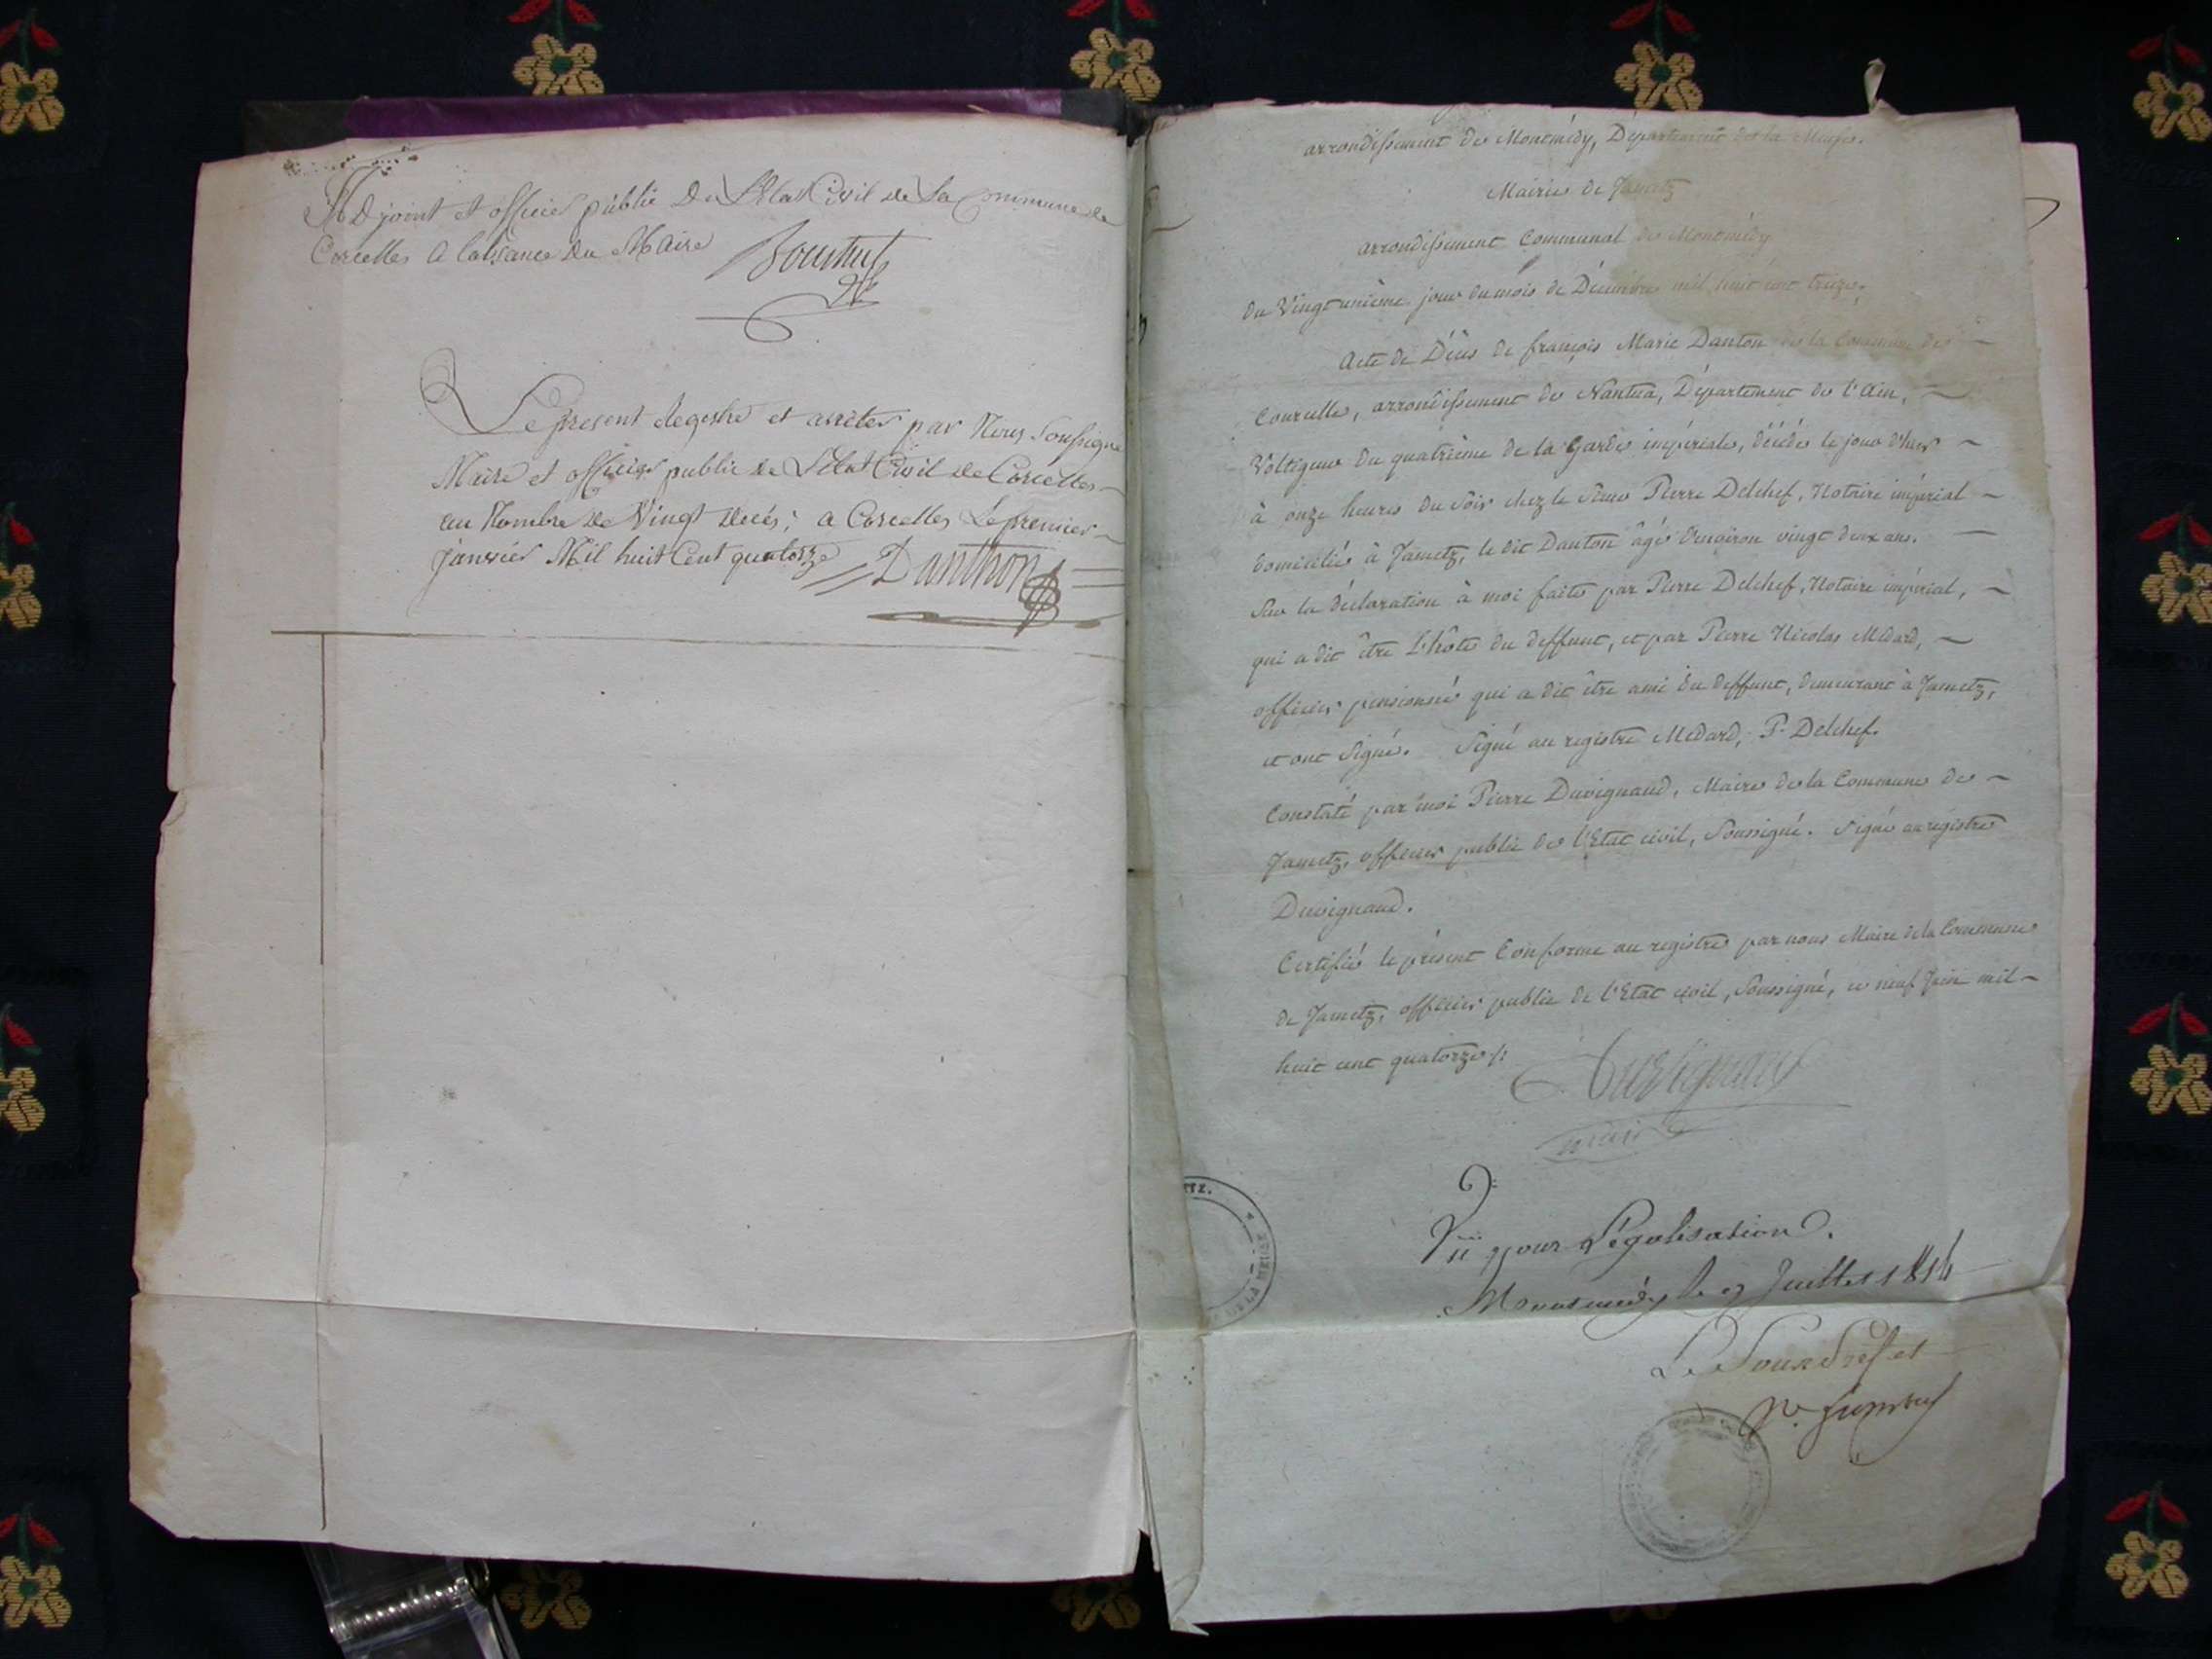 Adjoint et officier public De L'Etat Civil de La Commune de
Corcelles a labsance Du Maire
Le present Regestre et arrêter par Nous Soussigné
Maire et officier public de L'Etat Civil de Corcelles
au Nombre de Vingt decés; a Corcelles Le premier
janvier Mil huit Cent quatorze Danthon
arrondissement de Montmédy, Département de la Meuse.
Mairie de Jametz
arrondissement Communal de Montmédy
du Vingt unième jour du mois de Décembre mil huit cent treize.
Acte de Décès de françois Marie Danton de la Commune de
Courcelle, arrondissement de Nantua, Département de l'Ain,
Voltigeur du quatrième de la Garde impériale, décédé le jour d'hier
à onze heures du Soir chez le Sieur Pierre Delchef, Notaire impérial
domicilié à Jametz, le dit Danton âgé d'environ vingt deux ans.
Sur la déclaration à moi faite par Pierre Delchef, Notaire impérial,
qui a dit être L'hôte du deffunt, et par Pierre Nicolas Médard,
officier pensionné qui a dit être ami du deffunt, demeurant à Jametz,
et ont Signé. Signé au registre Médard, P. Delchef.
Constaté par moi Pierre Duvignaud, Maire de la Commune de
Jametz, officier public de l'Etat civil, Soussigné. Signé au registre
Duvignaud.
Certifié le présent Conforme au registre par nous Maire de la Commune
de Jametz, officier public de l'Etat civil, Soussigné, ce neuf Juin mil
huit cent quatorze /:
Duvignaud
maire
TZ.
DE LA MEUSE
Vu pour Légalisation.
Montmédy le 9 Juillet 1814
Le Sous Préfet